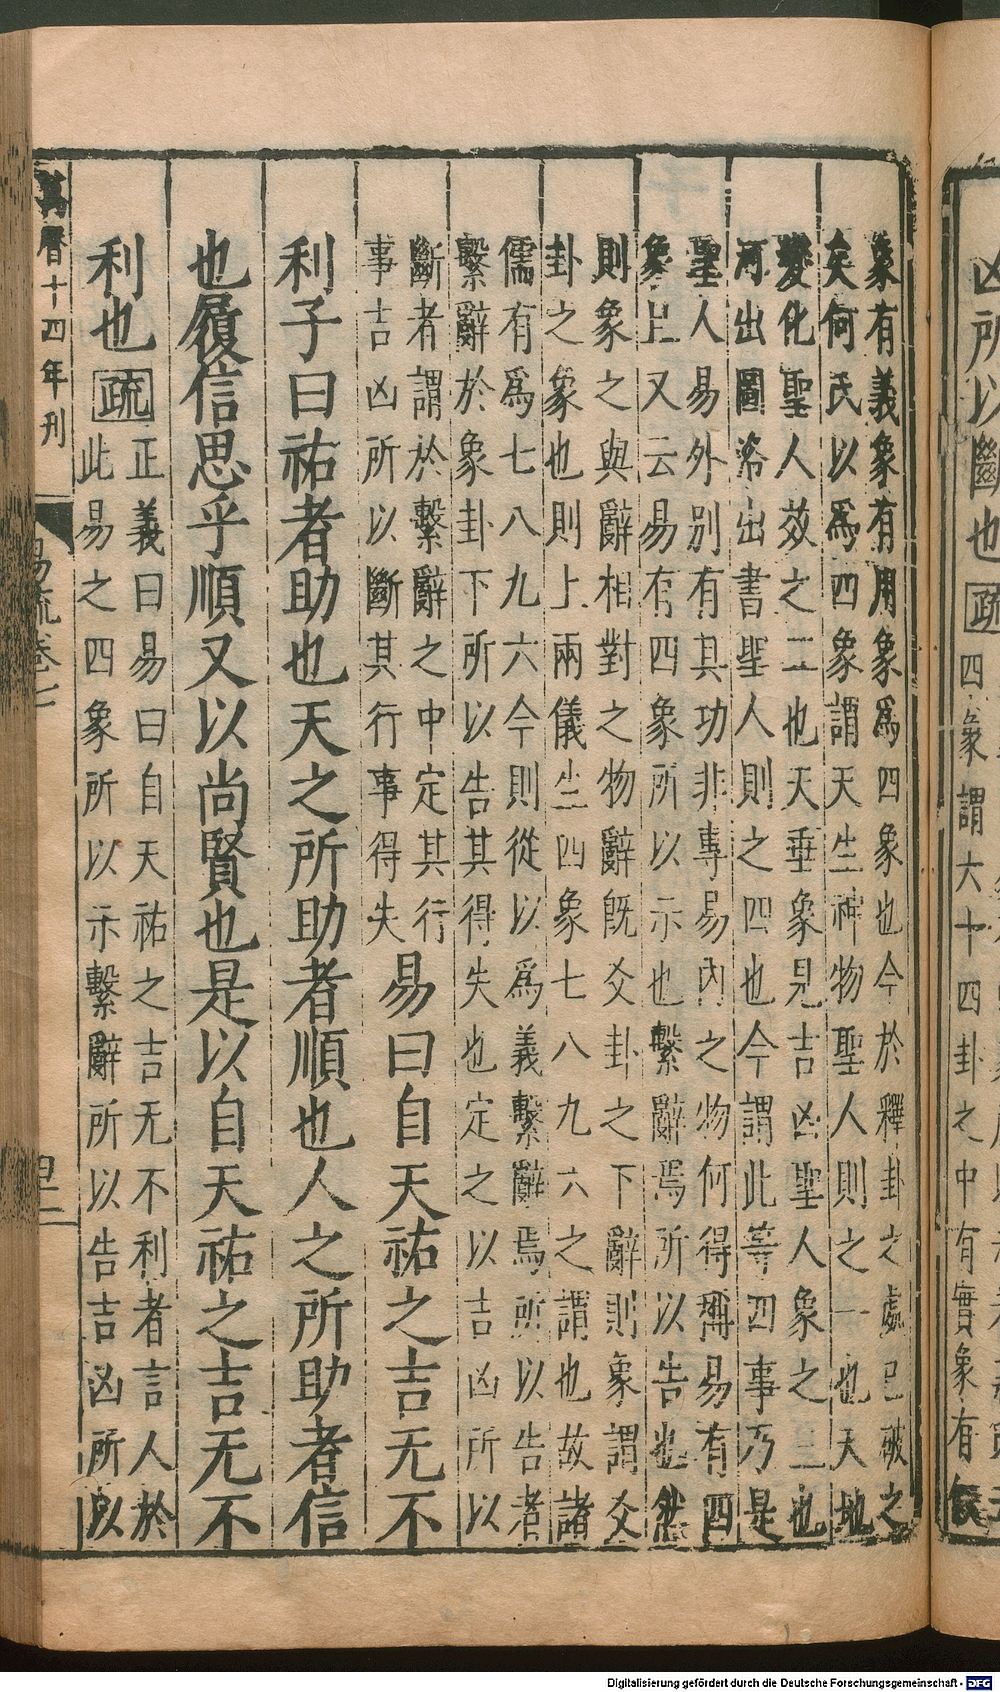 凶所以斷也疏
四象謂六十四卦之中有實象有假
象有義象有用象爲四象也今於釋卦之處已破之
矣何氏以爲四象謂天生神物聖人則之一也天地
變化聖人效之二也天垂象見吉凶聖人象之三也
河出圖洛出書聖人則之四也今謂此等四事乃是
聖人易外別有其功非專易內之物何得稱易有四
象且又云易有四象所以示也繫辭焉所以告也然
則象之與辭相對之物辭既爻卦之下辭則象謂爻
卦之象也則上兩儀生四象七八九六之謂也故諸
儒有爲七八九六今則從以爲義繫辭焉所以告者
繫辭於象卦下所以告其得失也定之以吉凶所以
斷者謂於繫辭之中定其行
事吉凶所以斷其行事得失
易曰自天祐之吉无不
利子曰祐者助也天之所助者順也人之所助者信
也履信思乎順又以尚賢也是以自天祐之吉无不
利也疏
正義曰易曰自天祐之吉无不利者言人於
此易之四象所以示繫辭所以告吉凶所以
萬曆十四年刊
易疏卷七
Digitalisierung gefördert durch die Deutsche Forschungsgemeinschaft - DFG